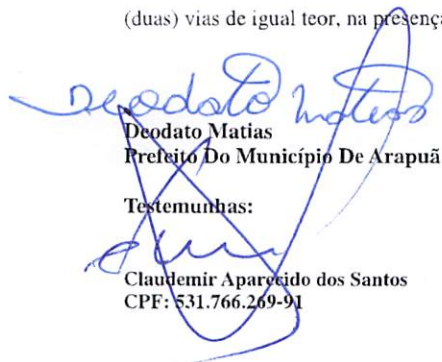 (duas) vias de igual teor, na presença
Deodato Matias
Deodato Matias
Prefeito Do Município De Arapuã
Testemunhas:
Claudemir Aparecido dos Santos
CPF: 531.766.269-91